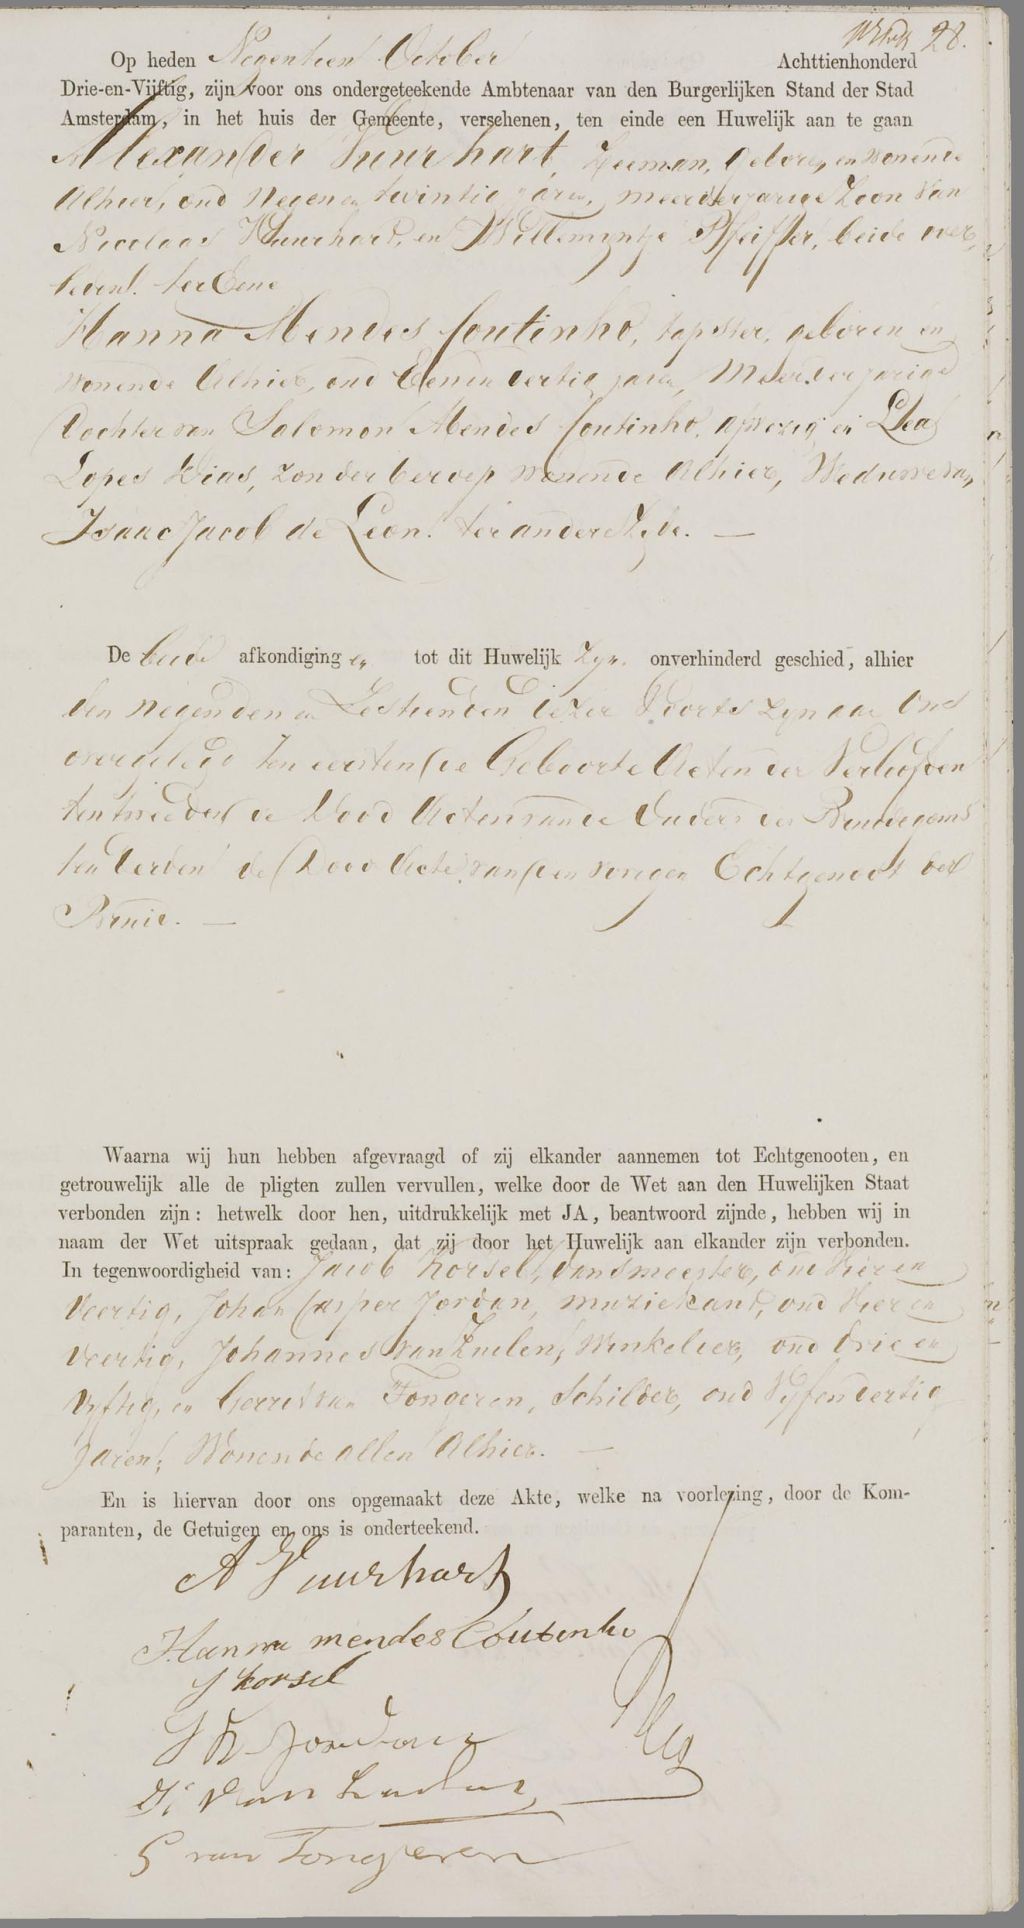 28.
Op heden Negentien October Achttienhonderd
Drie-en-Vijftig, zijn voor ons ondergeteekende Ambtenaar van den Burgerlijken Stand der Stad
Amsterdam, in het huis der Gemeente, verschenen, ten einde een Huwelijk aan te gaan
Alexander Vuurhart, Zeeman, geboren en wonende
Alhier, oud Negen en twintig jaren, meerderjarige Zoon van
Nicolaas Vuurhart, en Willemyntje Pfeiffer, beide over„
leden. ter Eene
Hanna Mendes Coutinho, tapster, geboren en
wonende Alhier, oud Een en dertig jaren, Meerderjarige
Dochter van Salomon Mendes Coutinho, afwezig en Lea
Lopes Dias, zonder beroep wonende Alhier, Weduwe van
Isaac Jacob de Leon. ter andere Zyde. —
De beide afkondiging en tot dit Huwelijk zyn onverhinderd geschied, alhier
den negenden en Zestienden dezer Voorts zyn aan Ons
overgelegd ten eersten de Geboorte Acten der Verloofden
ten tweeden de Dood Acten van de Ouders des Bruidegoms
ten derden de Dood Acte van den vorigen Echtgenoot der
Bruid. —
Waarna wij hun hebben afgevraagd of zij elkander aannemen tot Echtgenooten, en
getrouwelijk alle de pligten zullen vervullen, welke door de Wet aan den Huwelijken Staat
verbonden zijn: hetwelk door hen, uitdrukkelijk met JA, beantwoord zijnde, hebben wij in
naam der Wet uitspraak gedaan, dat zij door het Huwelijk aan elkander zijn verbonden.
In tegenwoordigheid van: Jacob Korsel, Dansmeester, oud Vier en
Veertig, Johan Casper Jordan, muziekant, oud Vier en
Veertig, Johannes van Zuilen, Winkelier, oud drie en
Vyftig, en Gerrit van Tongeren, Schilder, oud Vyf en dertig
Jaren; Wonende allen Alhier. —
En is hiervan door ons opgemaakt deze Akte, welke na voorlezing, door de Kom-
paranten, de Getuigen en ons is onderteekend.
A Vuurhart
Hanna mendes Coutinho
J Korsel
Jordan
van Zuilen
G van Tongeren